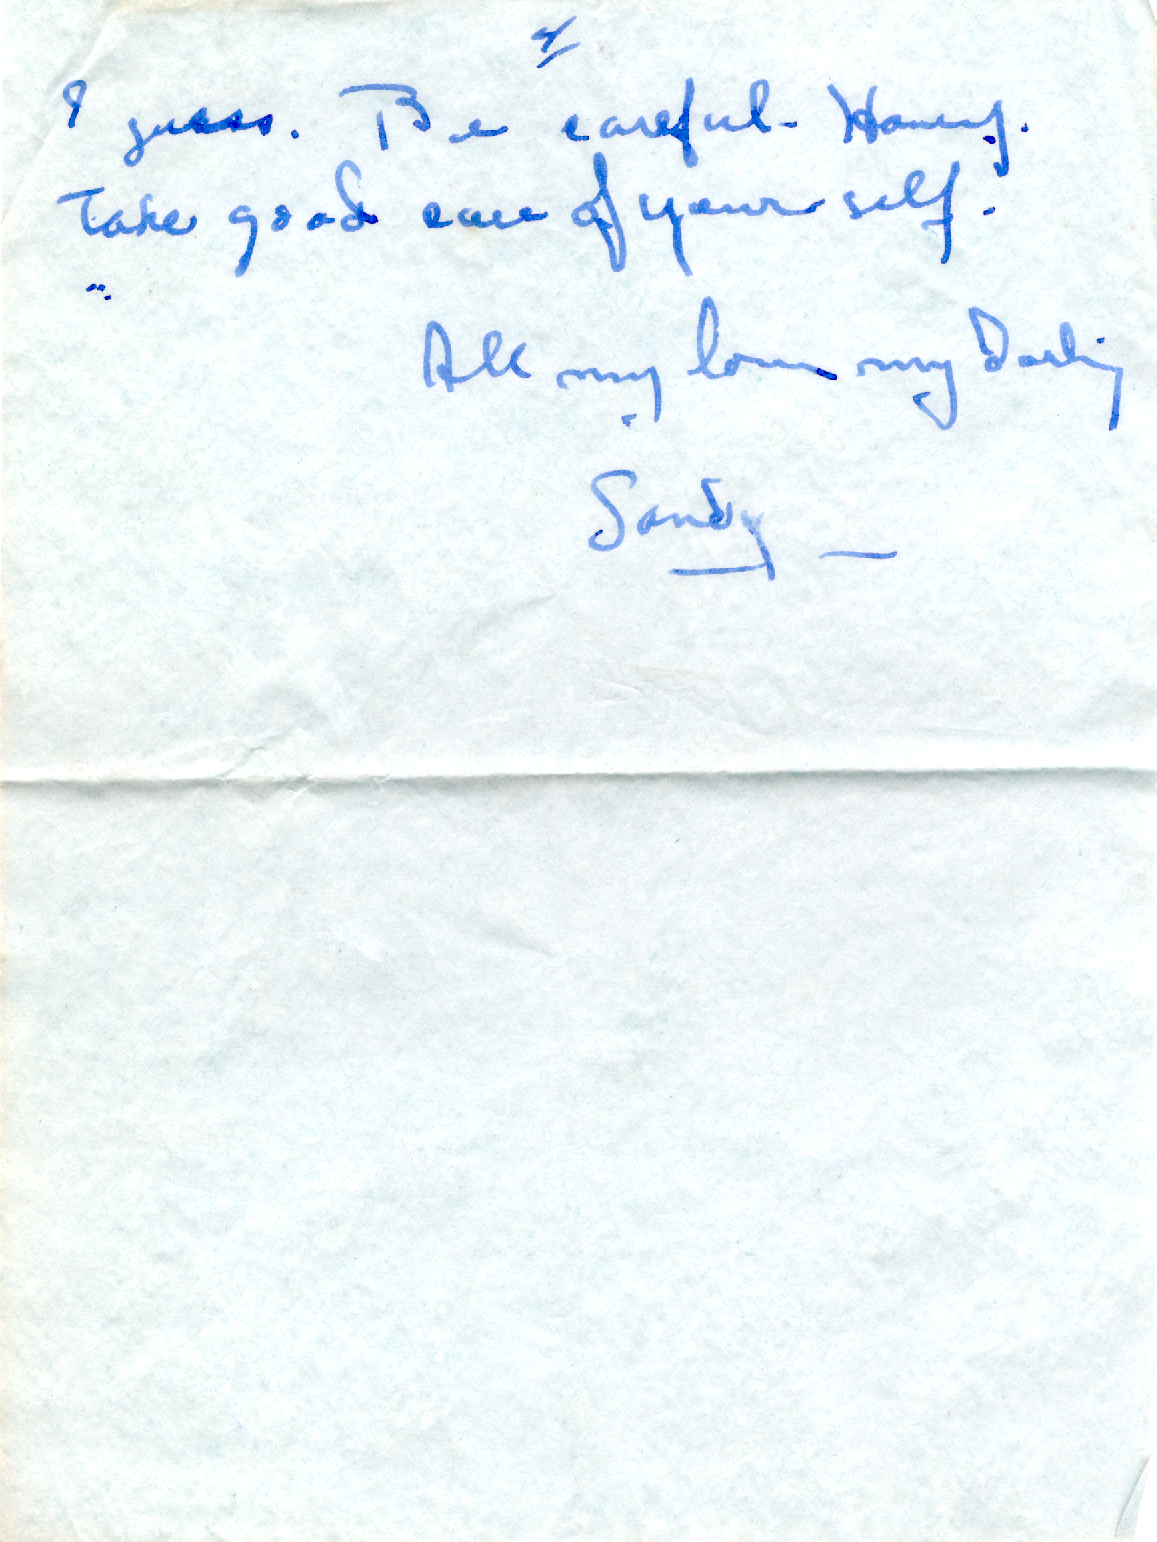 4
I guess. Be careful - Honey.
Take good care of yourself.
All my love my Darling
Sandy —